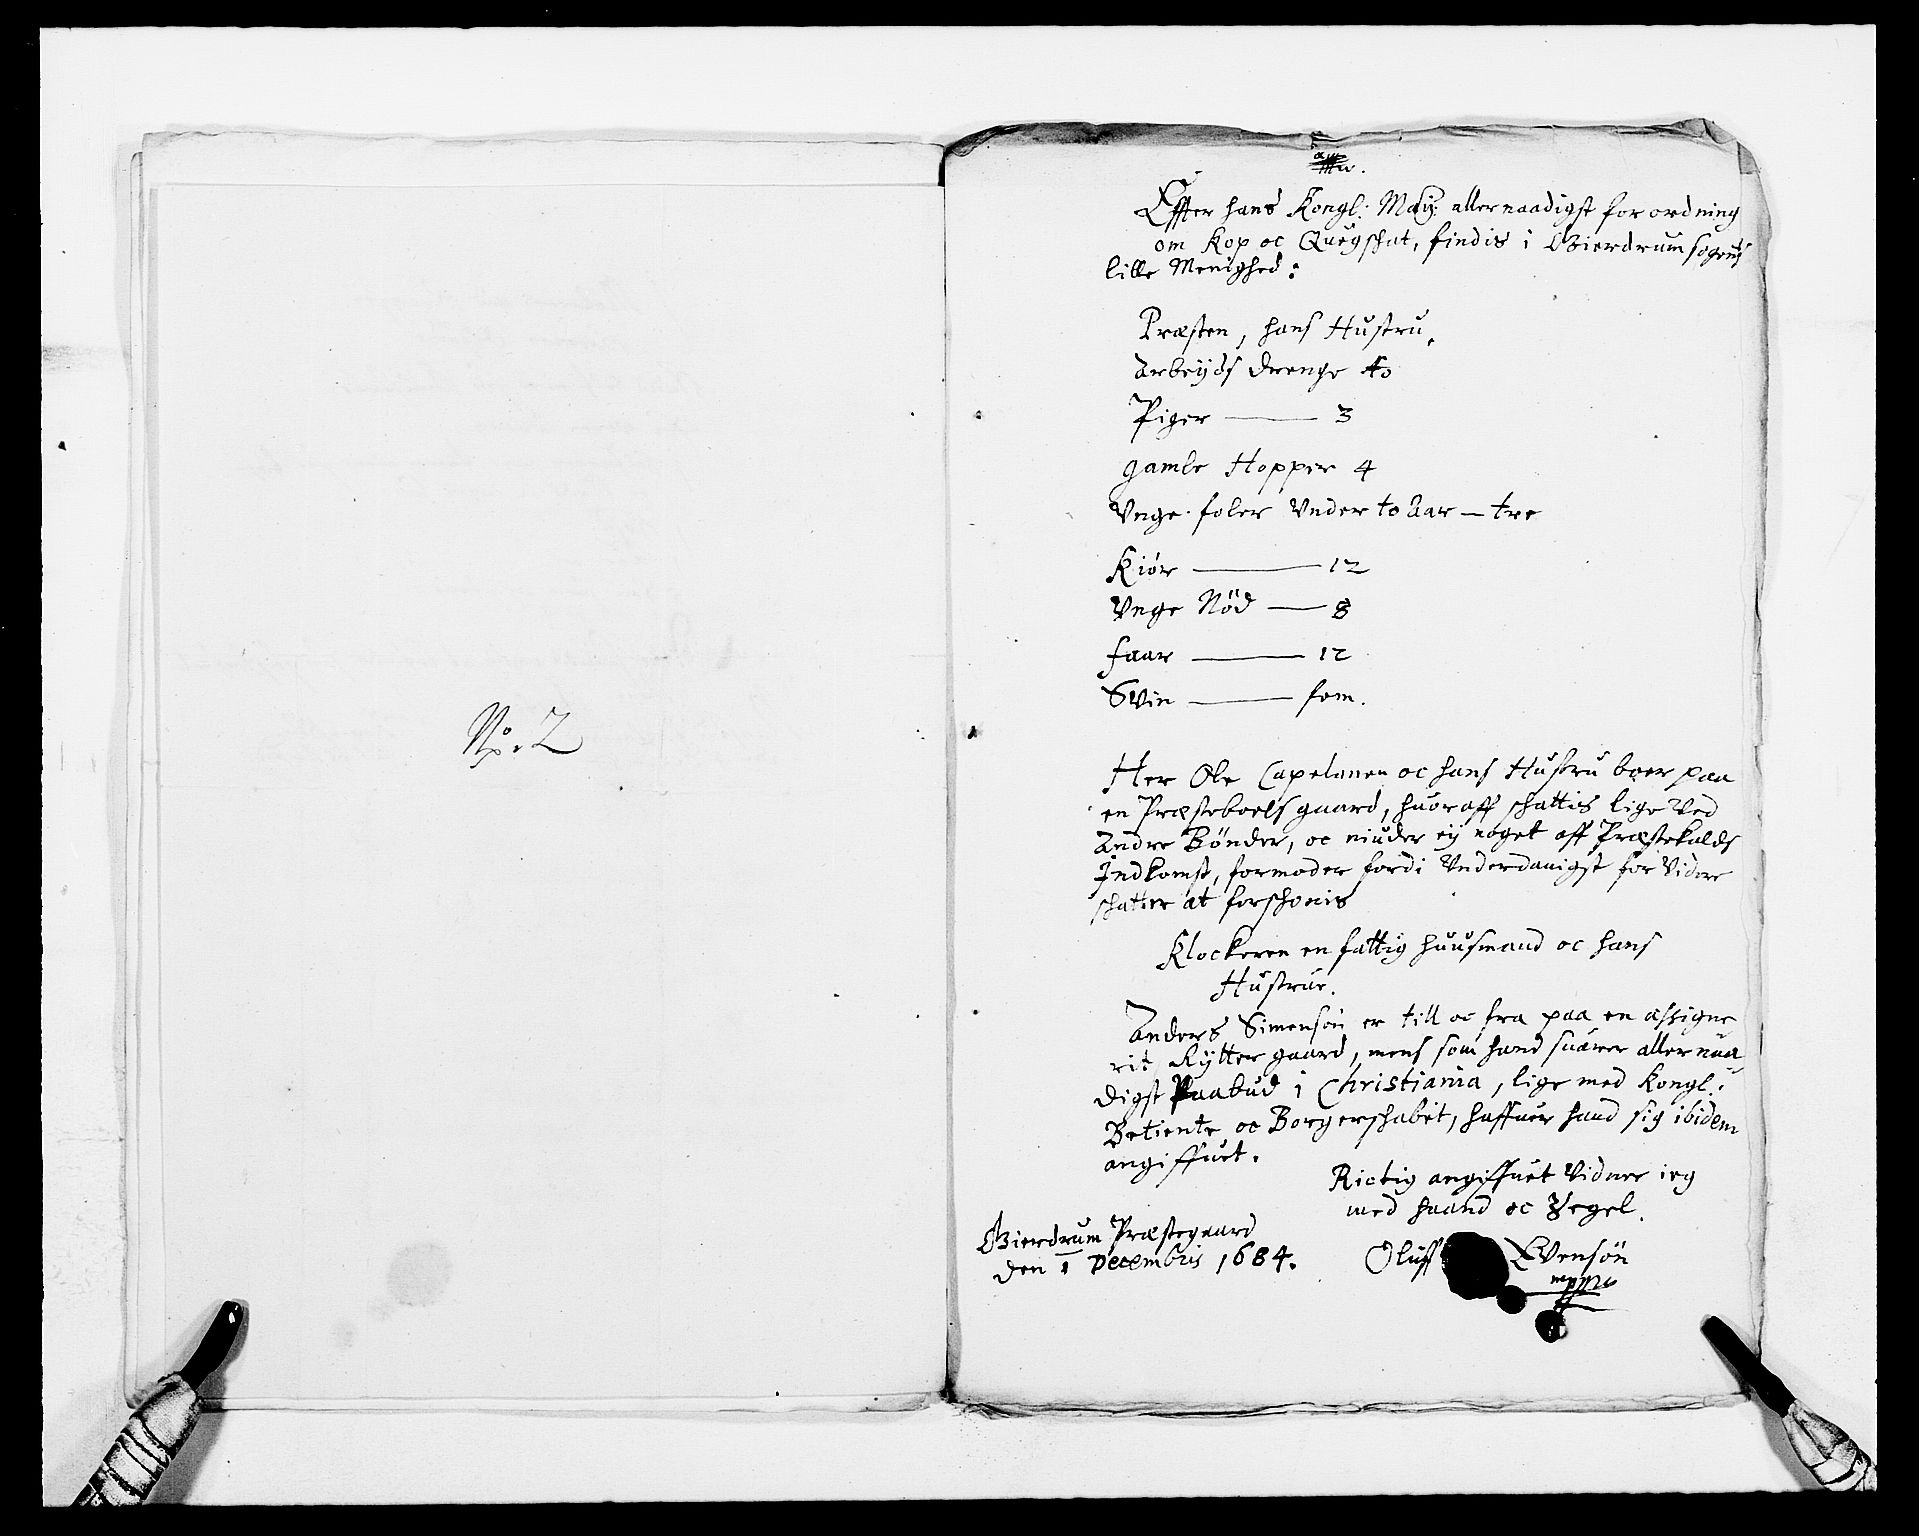 No. 2
Effter hans Kongl: May: allernaadigst forordning
om Kop oc Quegschat, findis i Gierdrum sogens
lille Menighed:
Præsten, hans Hustru,
Arbeyds drenge to
Piger — 3
gamle Hopper 4
Vnge foler Vnder to Aar — tre
Kiør — 12
Vnge Nød — 8
faar — 12
Svin — fem.
Her Ole Capelanen oc hans Hustru boer paa
en Præsteboels gaard, huoraff schattis lige Ved
Andre Bønder, oc niuder ey noget aff Præstekalds
Indkomst, formoder fordi Vnderdanigst for Videre
schatter at forschonis
Klockeren en fattig huusmand oc hans
Hustrue.
Anders Simensøn er till oc fra paa en assigne
rit Rytter gaard, mens som hand suarer allernaa
digst Paabud i Christiania, lige med Kongl:
Betiente oc Borgerschabet, haffuer hand sig ibidem
angiffuet.
Rictig angiffuet Vidner ieg
med haand oc Zegel.
Gierdrum Præstegaard
den 1 Decembris 1684.
Oluff Evensøn
mppria